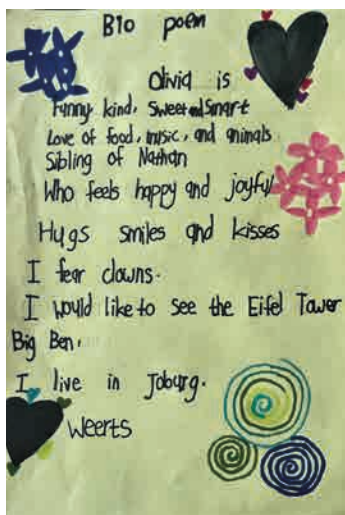 Bio poem
Olivia is
Funny, kind, Sweet and Smart
Love of food, music, and animals.
Sibling of Nathan
Who feels happy and joyful
Hugs smiles and kisses
I fear clowns.
I would like to see the Eifel Tower
Big Ben.
I live in Joburg.
Weerts